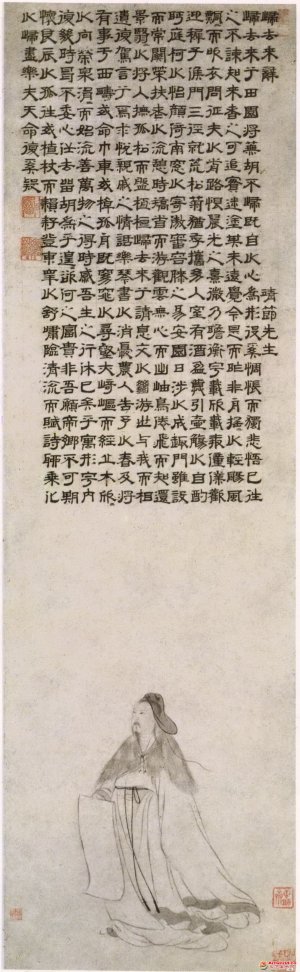 歸去來辭　靖節先生
歸去來兮田園將蕪胡不歸既自以心爲形役奚惆悵而獨悲悟已往
之不諫知來者之可追實迷塗其未遠覺今是而昨非舟搖搖以輕颺風
飄飄而吹衣問征夫以前路恨晨光之熹微乃瞻衡宇載欣載奔僮僕歡
迎稚子候門三徑就荒松菊猶存攜幼入室有酒盈樽引壺觴以自酌
眄庭柯以怡顏倚南窗以寄傲審容膝之易安園日涉以成趣門雖設
而常關策扶老以流憩時矯首而遐觀雲無心而出岫鳥倦飛而知還
景翳翳以將入撫孤松而盤桓歸去來兮請息交以絕游世與我而相
遺復駕言兮焉求悅親戚之情話樂琴書以消憂農人告予以春及將
有事于西疇或命巾車或棹孤舟既窈窕以尋壑亦崎嶇而經丘木欣欣
以向榮泉涓涓而始流善萬物之得時感吾生之行休已矣乎寓形宇內
復幾時曷不委心任去留胡爲乎遑遑何之富貴非吾願帝鄉不可期
懷良辰以孤往或植杖而耘耔登東皋以舒嘯臨清流而賦詩聊乘化
以歸盡樂夫天命復奚疑